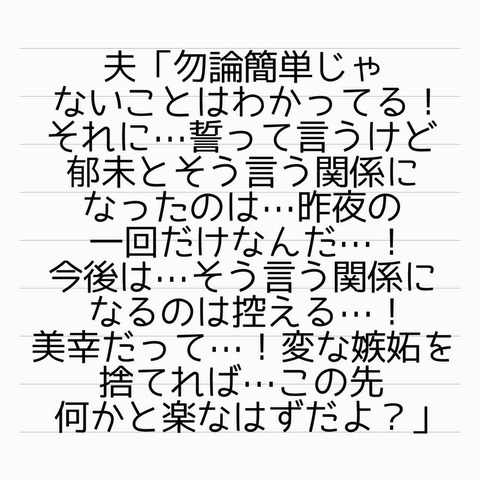 夫「勿論簡単じゃ
ないことはわかってる！
それに…誓って言うけど
郁未とそう言う関係に
なったのは…昨夜の
一回だけなんだ…！
今後は…そう言う関係に
なるのは控える…！
美幸だって…！変な嫉妬を
捨てれば…この先
何かと楽なはずだよ？」